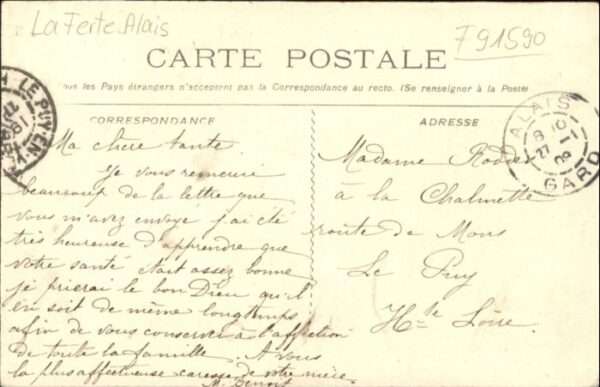 La Ferte-Alais
F91590
CARTE POSTALE
ous les Pays étrangers n'acceptent pas la Correspondance au recto. (Se renseigner à la Poste)
CORRESPONDANCE
Ma chere tante
Je vous remercie
beaucoup de la lettre que
vous m'avez envoye j'ai été
très heureuse d'apprendre que
votre santé étant assez bonne
je prierai le bon Dieu qu'il
en soit de même longtemps
afin de vous conserver à l'affection
de toute la famille. A vous
la plus affectueuse caresse de votre nièce
M. Benoit
ADRESSE
Madame
à la Chalmette
route de Mons
Le Puy
Hte Loire.
LE PUY-EN-
ALAIS
8 10
27 -1
09
GARD